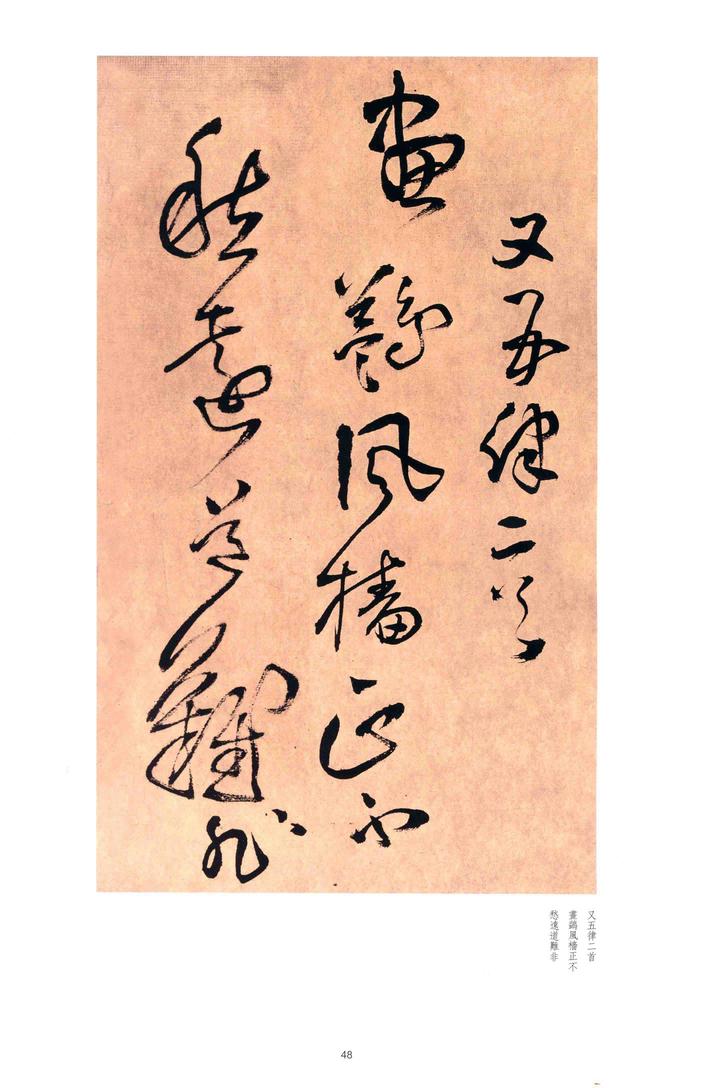 又五律二首
畫鷁風檣正不
愁遠道難非
又五律二首
畫鷁風檣正不
愁遠道難非
48